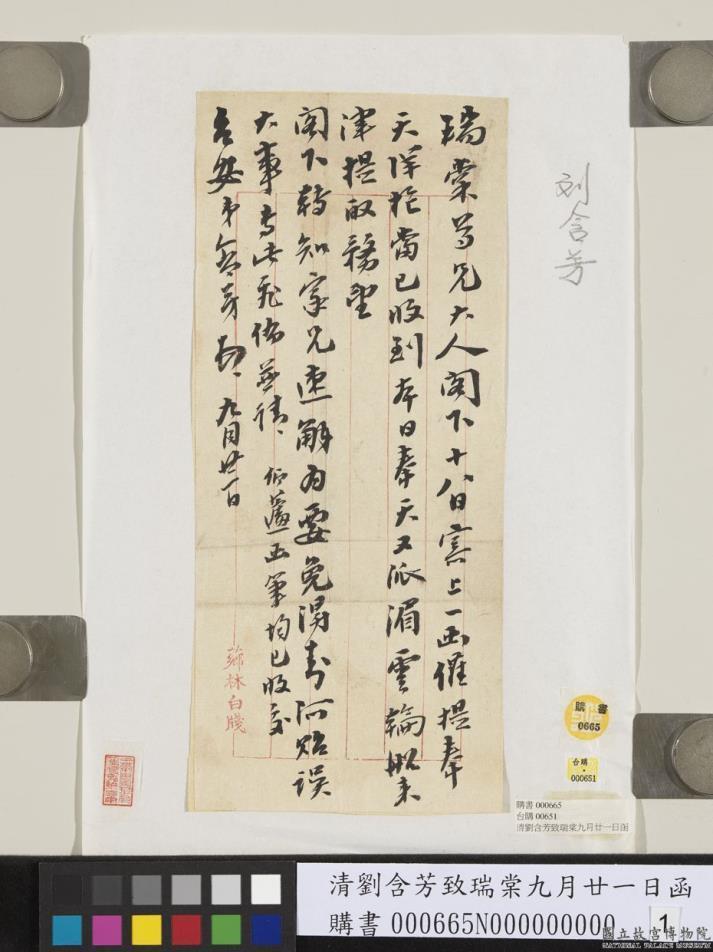 瑞棠尊兄大人閣下十八日寄上一函催提奉
天洋槍當已收到本日奉天又派湄雲輪船來
津提取務望
閣下轉知家兄速解為要免得封河貽誤
大事專此飛佈並請
台安弟含芳頓 九月廿一日
均已收交
蒜林白牋
刘含芳
購書
0665
台購
000651
購書 000665
台購 00651
清劉含芳致瑞棠九月廿一日函
清劉含芳致瑞棠九月廿一日函
購書 000665N000000000 1
國立故宮博物院
NATIONAL PALACE MUSEUM